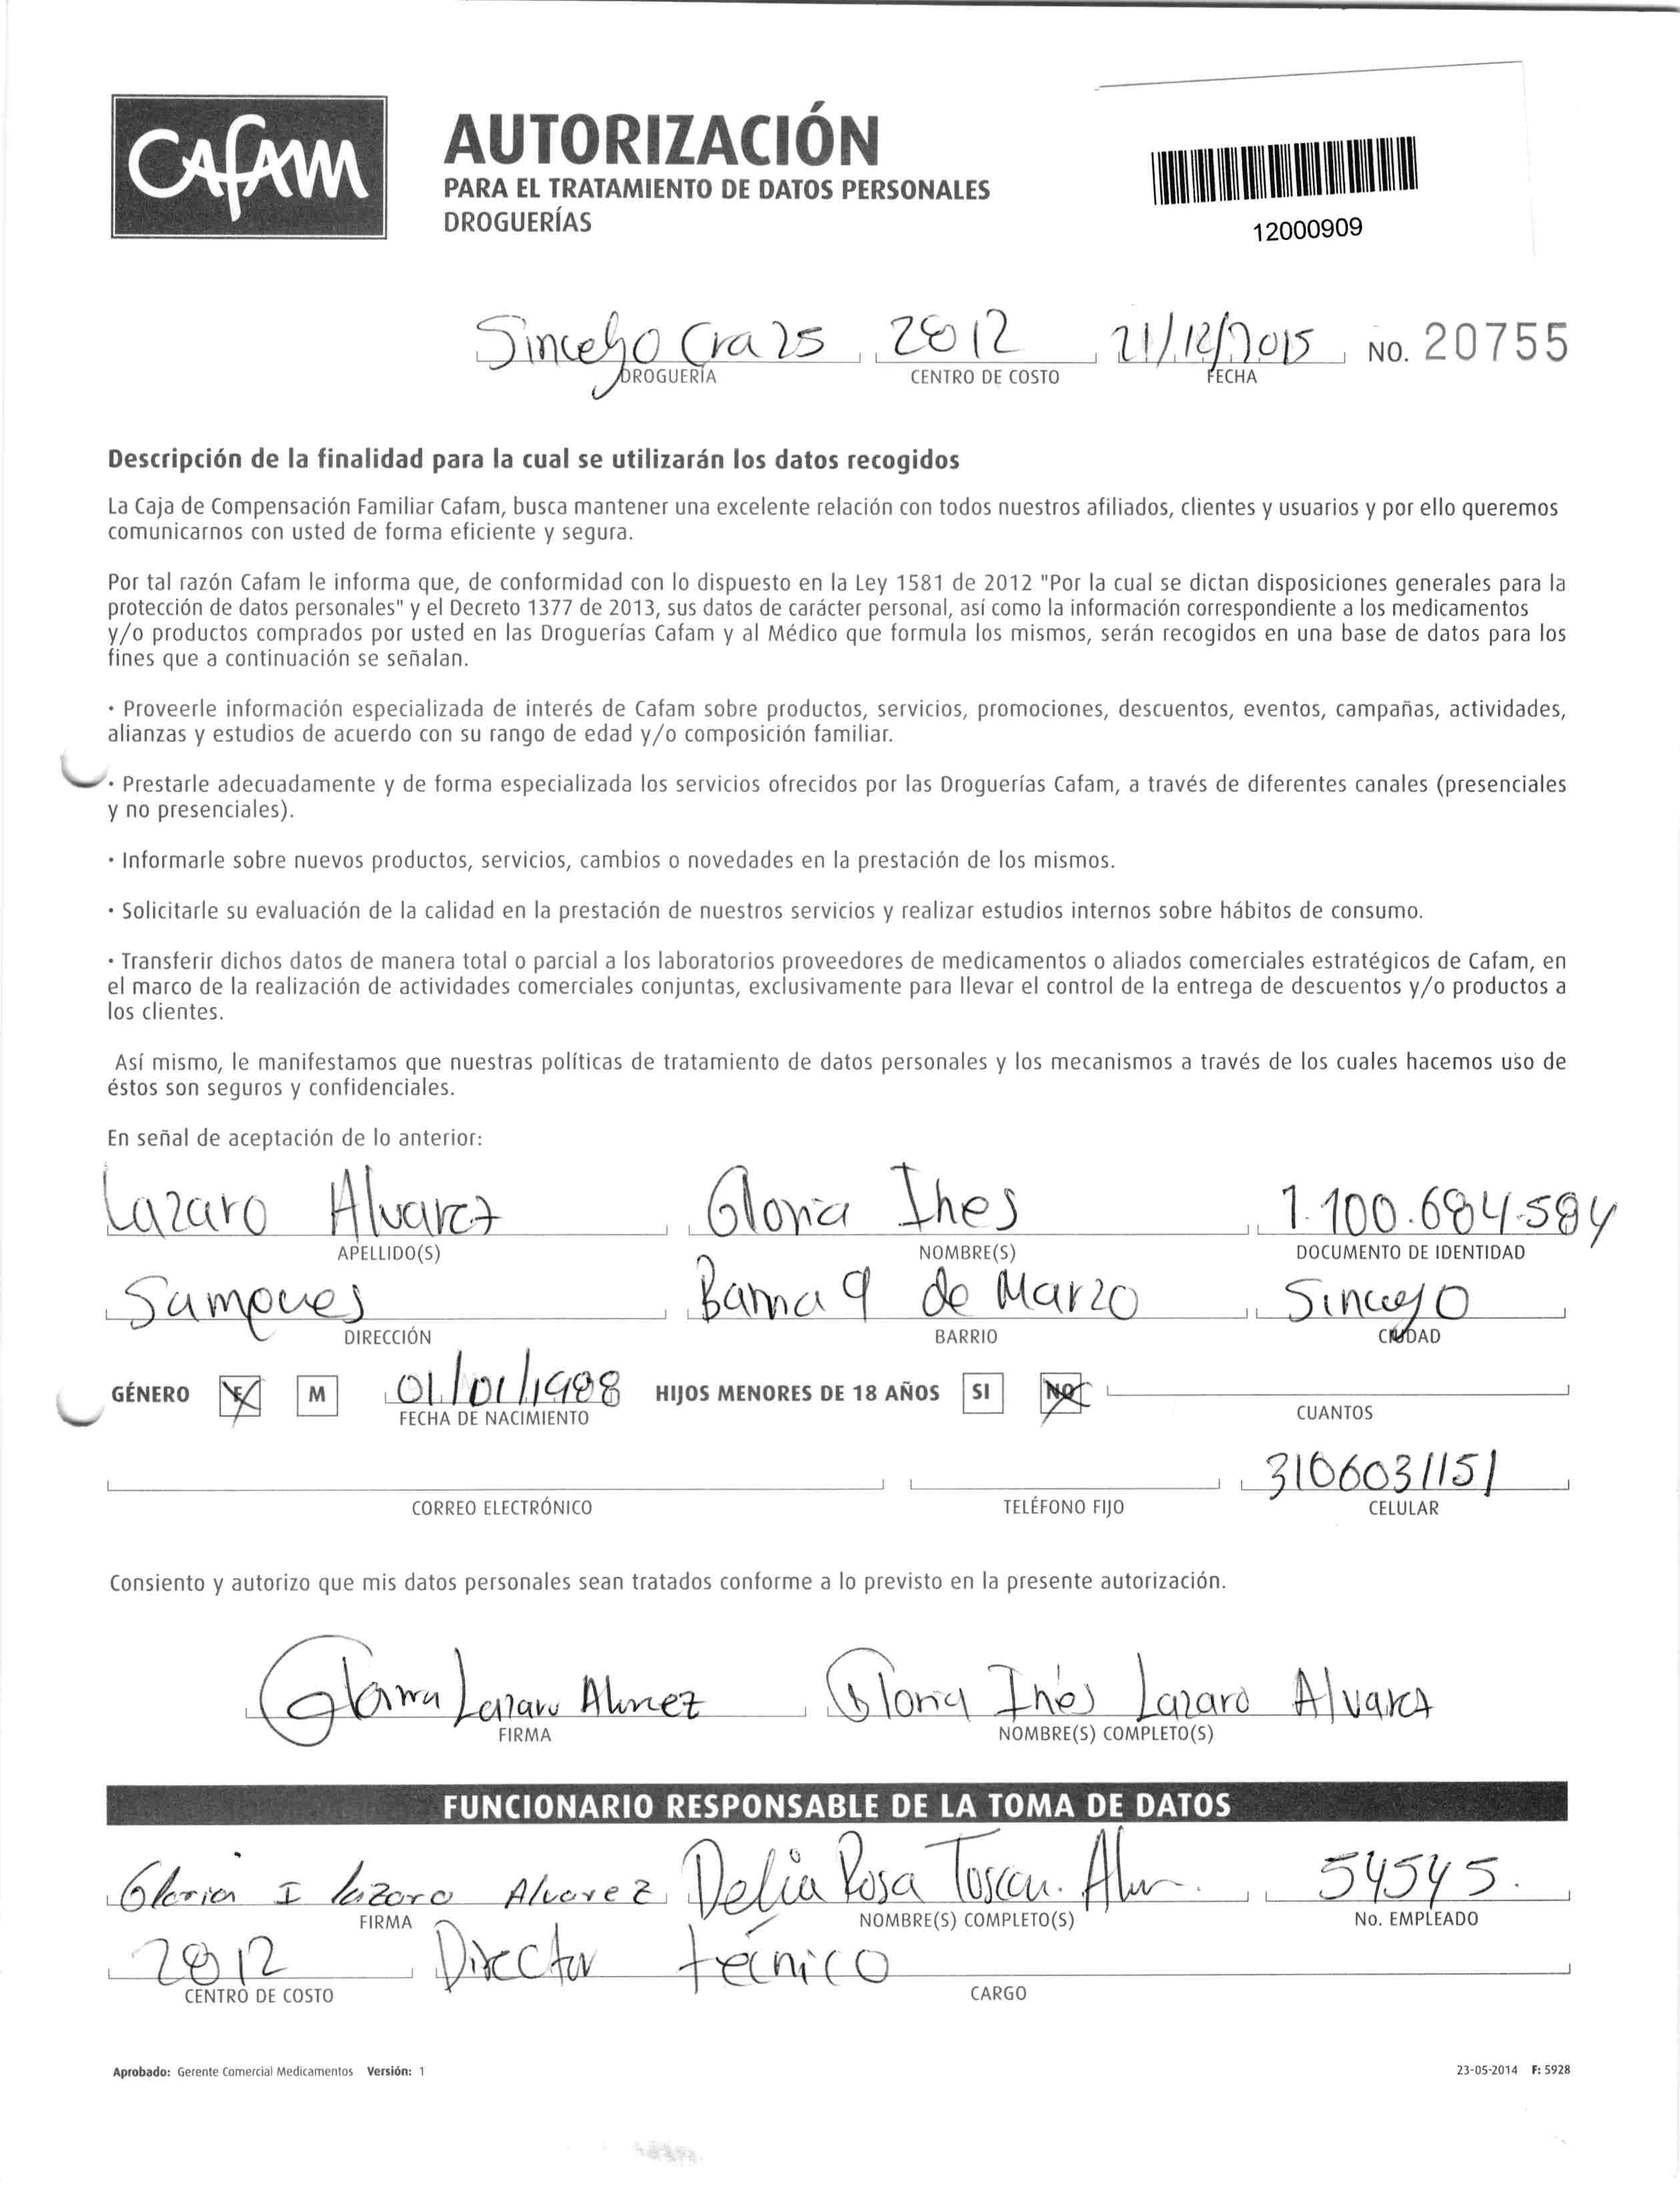 CAFAM
AUTORIZACIÓN
PARA EL TRATAMIENTO DE DATOS PERSONALES
DROGUERÍAS
12000909
Sincelejo Cra 25 2812 21/12/2015 NO. 20755
DROGUERÍA CENTRO DE COSTO FECHA
Descripción de la finalidad para la cual se utilizarán los datos recogidos
La Caja de Compensación Familiar Cafam, busca mantener una excelente relación con todos nuestros afiliados, clientes y usuarios y por ello queremos
comunicarnos con usted de forma eficiente y segura.
Por tal razón Cafam le informa que, de conformidad con lo dispuesto en la Ley 1581 de 2012 "Por la cual se dictan disposiciones generales para la
protección de datos personales" y el Decreto 1377 de 2013, sus datos de carácter personal, así como la información correspondiente a los medicamentos
y/o productos comprados por usted en las Droguerías Cafam y al Médico que formula los mismos, serán recogidos en una base de datos para los
fines que a continuación se señalan.
· Proveerle información especializada de interés de Cafam sobre productos, servicios, promociones, descuentos, eventos, campañas, actividades,
alianzas y estudios de acuerdo con su rango de edad y/o composición familiar.
· Prestarle adecuadamente y de forma especializada los servicios ofrecidos por las Droguerías Cafam, a través de diferentes canales (presenciales
y no presenciales).
· Informarle sobre nuevos productos, servicios, cambios o novedades en la prestación de los mismos.
· Solicitarle su evaluación de la calidad en la prestación de nuestros servicios y realizar estudios internos sobre hábitos de consumo.
· Transferir dichos datos de manera total o parcial a los laboratorios proveedores de medicamentos o aliados comerciales estratégicos de Cafam, en
el marco de la realización de actividades comerciales conjuntas, exclusivamente para llevar el control de la entrega de descuentos y/o productos a
los clientes.
Así mismo, le manifestamos que nuestras políticas de tratamiento de datos personales y los mecanismos a través de los cuales hacemos uso de
éstos son seguros y confidenciales.
En señal de aceptación de lo anterior:
Lazaro Alvarez Gloria Ines 1.100.684.584
APELLIDO(S) NOMBRE(S) DOCUMENTO DE IDENTIDAD
Sampues 9 de Marzo Sincelejo
DIRECCIÓN BARRIO CIUDAD
GÉNERO F M 01/01/1988 HIJOS MENORES DE 18 AÑOS SI NO
FECHA DE NACIMIENTO CUANTOS
3106031151
CORREO ELECTRÓNICO TELÉFONO FIJO CELULAR
Consiento y autorizo que mis datos personales sean tratados conforme a lo previsto en la presente autorización.
Gloria Lazaro Alvarez Gloria Inés Lazaro Alvarez
FIRMA NOMBRE(S) COMPLETO(S)
FUNCIONARIO RESPONSABLE DE LA TOMA DE DATOS
Gloria I lazaro Alvarez Delia Rosa 54545.
FIRMA NOMBRE(S) COMPLETO(S) No. EMPLEADO
2812 Director técnico
CENTRO DE COSTO CARGO
Aprobado: Gerente Comercial Medicamentos Versión: 1 23-05-2014 F: 5928